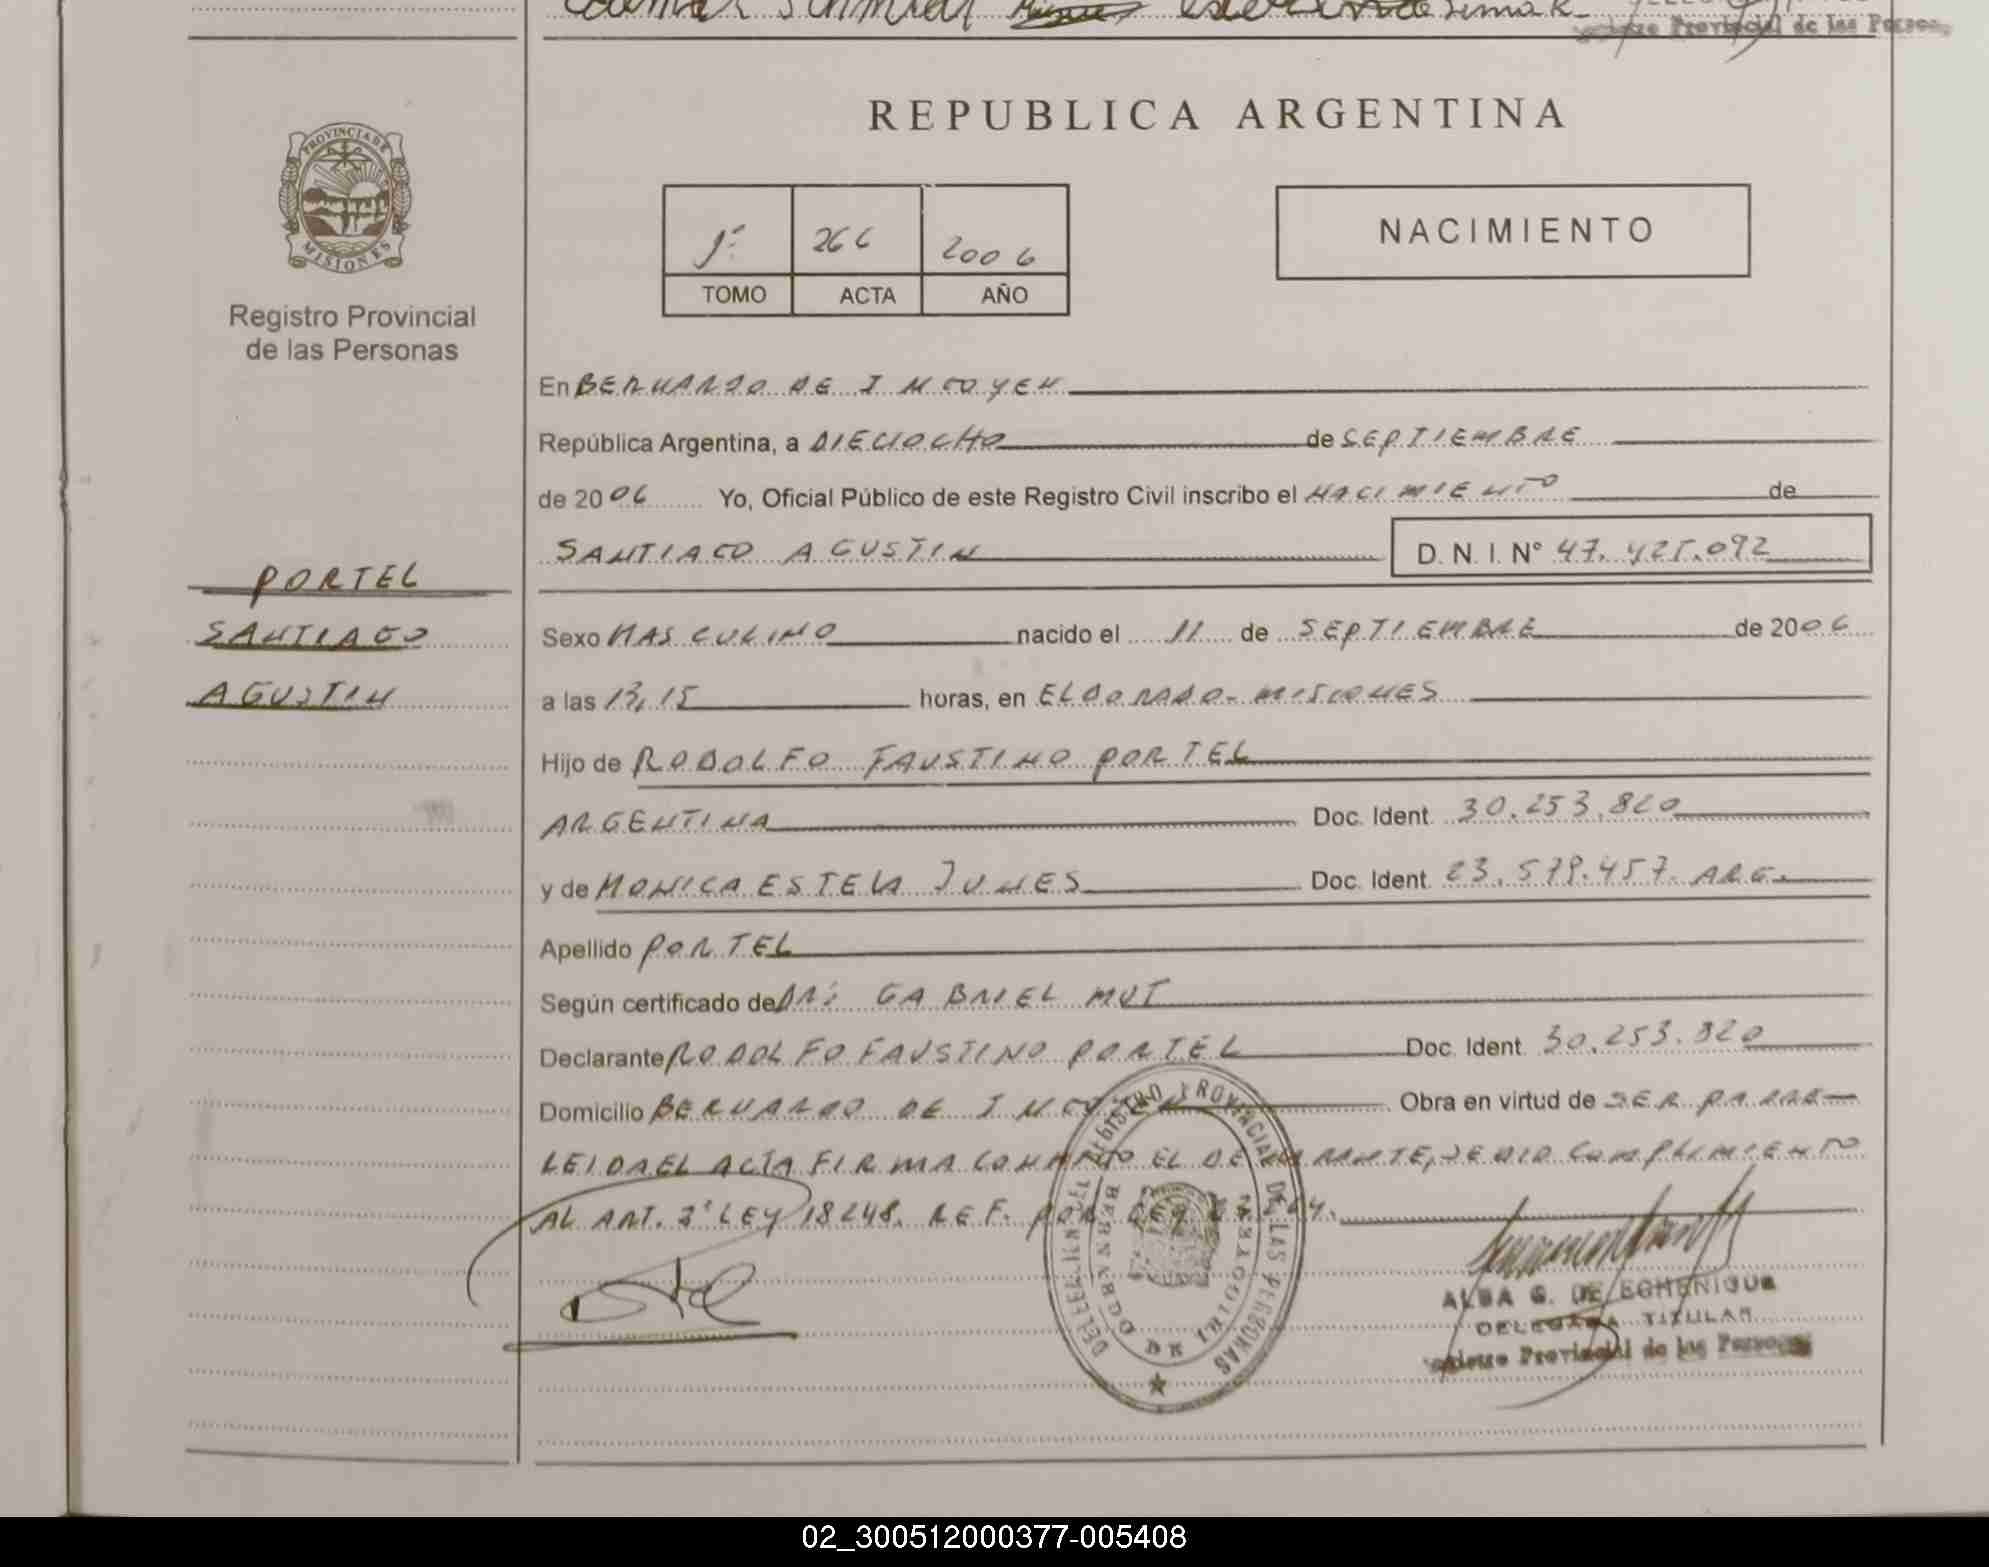 Schmidt
Provincial de las Person
REPUBLICA ARGENTINA
PROVINCIA DE
MISIONES
Registro Provincial
de las Personas
1º 266 2006
TOMO ACTA AÑO
NACIMIENTO
En BERNARDO DE IRIGOYEN
República Argentina, a DIECIOCHO de SEPTIEMBRE
de 2006 Yo, Oficial Público de este Registro Civil inscribo el NACIMIENTO de
SANTIAGO AGUSTIN D. N. I. Nº 47.425.092
PORTEL
SANTIAGO
AGUSTIN
Sexo MASCULINO nacido el 11 de SEPTIEMBRE de 2006
a las 13,15 horas, en ELDORADO-MISIONES
Hijo de RODOLFO FAUSTINO PORTEL
ARGENTINA Doc. Ident. 30.253.820
y de MONICA ESTELA JUNES Doc. Ident. 23.579.457. ARG.
Apellido PORTEL
Según certificado de DR: GABRIEL MUT
Declarante RODOLFO FAUSTINO PORTEL Doc. Ident. 30.253.820
Domicilio BERNARDO DE IRIGOYEN Obra en virtud de SER PADRE
LEIDA EL ACTA FIRMA CONMIGO EL DECLARANTE, SE DIO CUMPLIMIENTO
AL ART. 2º LEY 18248. REF. POR LEY
REGISTRO PROVINCIAL DE LAS PERSONAS
BERNARDO DE IRIGOYEN
ALBA G. DE ECHENIQUE
DELEGADA TITULAR
Registro Provincial de las Personas
02_300512000377-005408